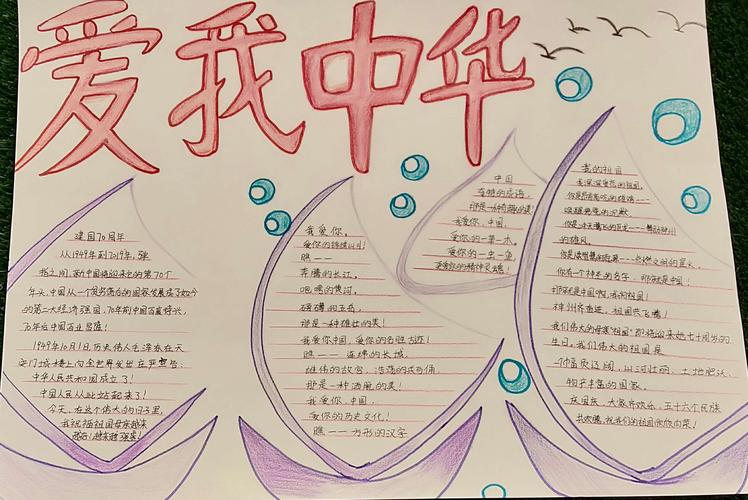 爱我中华
建国70周年
从1949年到2019年，弹
指之间，新中国就迎来它的第70个
年头，中国从一个贫穷落后的国家发展成了如今
的第二大经济强国，70年前中国百废待兴，
70年后中国百业昌盛！
1949年10月1日，历史伟人毛泽东在天
安门城楼上向全世界发出庄严宣告：
中华人民共和国成立了！
中国人民从此站起来了！
今天，在这个伟大的日子里，
我祝福祖国母亲越来
越好！越来越强盛！
我爱你，
爱你的锦绣山川！
瞧——
奔腾的长江，
咆哮的黄河，
磅礴的五岳，
那是一种雄壮的美！
我爱你中国，爱你的名胜古迹！
瞧——连绵的长城，
雄伟的故宫，浩荡的兵马俑，
那是一种洒脱的美！
我爱你，中国，
爱你的历史文化！
瞧——方形的汉字
中国
奇特的成语，
那是一种奇趣的美！
我爱你，中国，
爱你的一草一木，
爱你的一虫一鱼，
更爱你的精神灵魂！
我的祖国
我深深爱恋的祖国，
你是昂首高吭的雄鸡——
唤醒黎明的沉默，
你是冲天腾飞的巨龙——舞动神州
的雄风，
你是威风的雄狮——
你有一个神圣的名字，那就是中国！
那就是中国啊，我的祖国！
神州齐奋进，祖国共飞腾！
我们伟大的母亲"祖国"即将迎来她七十周岁的
生日。我们伟大的祖国是
一个幅员辽阔，山河壮丽，土地肥沃，
物产丰富的国家。
庆国庆，大家齐欢乐，五十六个民族
共欢腾，祝我们的祖国欣欣向荣！